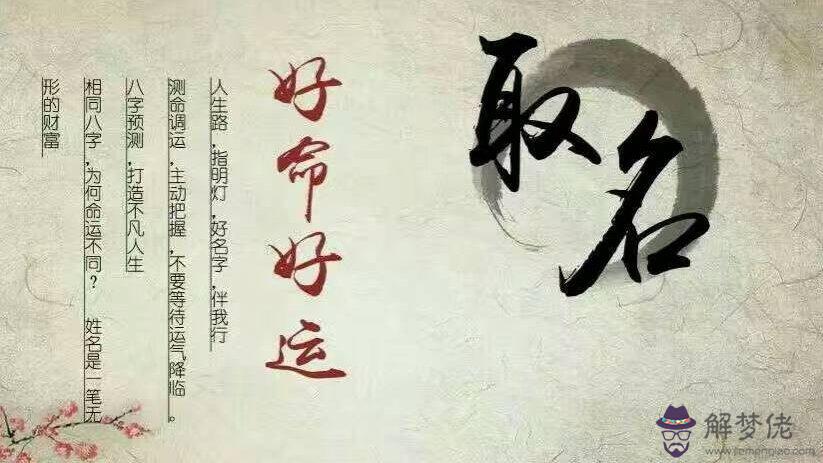 取名
好命好运
人生路，指明灯，好名字，伴我行
测命调运，主动把握，不要等待运气降临。
八字预测，打造不凡人生
相同八字，为何命运不同？ 姓名是一笔无
形的财富
解梦佬
www.jiemenglao.com